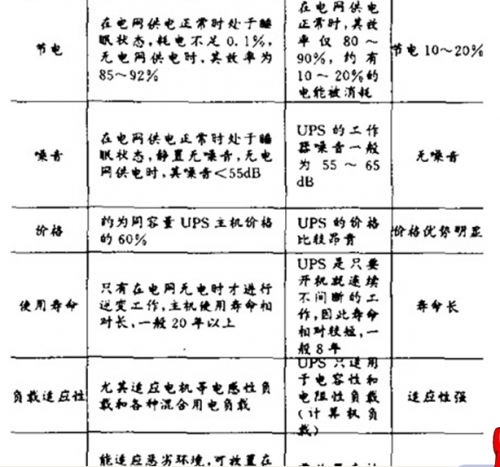 节电
在电网供电正常时处于睡
眠状态，耗电不足0.1%，
无电网供电时，其效率为
85～92%
在电网供电
正常时，其效
率仅80～
90%，约有
10～20%的
电能被消耗
节电10～20%
噪音
在电网供电正常时处于睡
眠状态，静置无噪音，无电
网供电时，其噪音＜55dB
UPS的工作
器噪音一般
为55～65
dB
无噪音
价格
约为同容量UPS主机价格
的60%
UPS的价格
比较昂贵
价格优势明显
使用寿命
只有在电网无电时才进行
逆变工作，主机使用寿命相
对长，一般20年以上
UPS是只要
开机就连续
不间断的工
作，因此寿命
相对较短，一
般8年
寿命长
负载适应性
尤其适应电机等电感性负
载和各种混合用电负载
UPS只适用
于电容性和
电阻性负载
（计算机负
载）
适应性强
能适应恶劣环境，可放置在